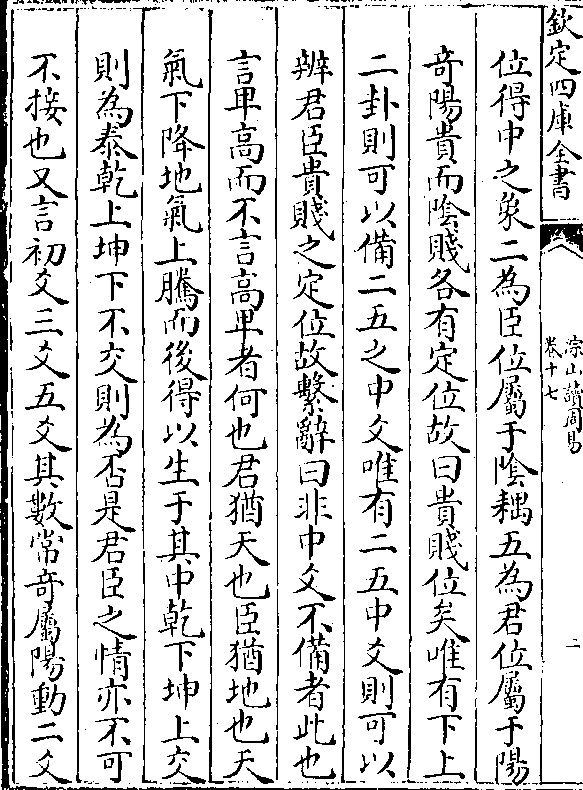 欽定四庫全書
淙山讀周易
卷十七
一
位得中之象二為臣位屬于陰耦五為君位屬于陽
竒陽貴而陰賤各有定位故曰貴賤位矣唯有下上
二卦則可以備二五之中爻唯有二五中爻則可以
辨君臣貴賤之定位故繫辭曰非中爻不備者此也
言卑高而不言高卑者何也君猶天也臣猶地也天
氣下降地氣上騰而後得以生于其中乾下坤上交
則為泰乾上坤下不交則為否是君臣之情亦不可
不接也又言初爻三爻五爻其數常奇屬陽動二爻